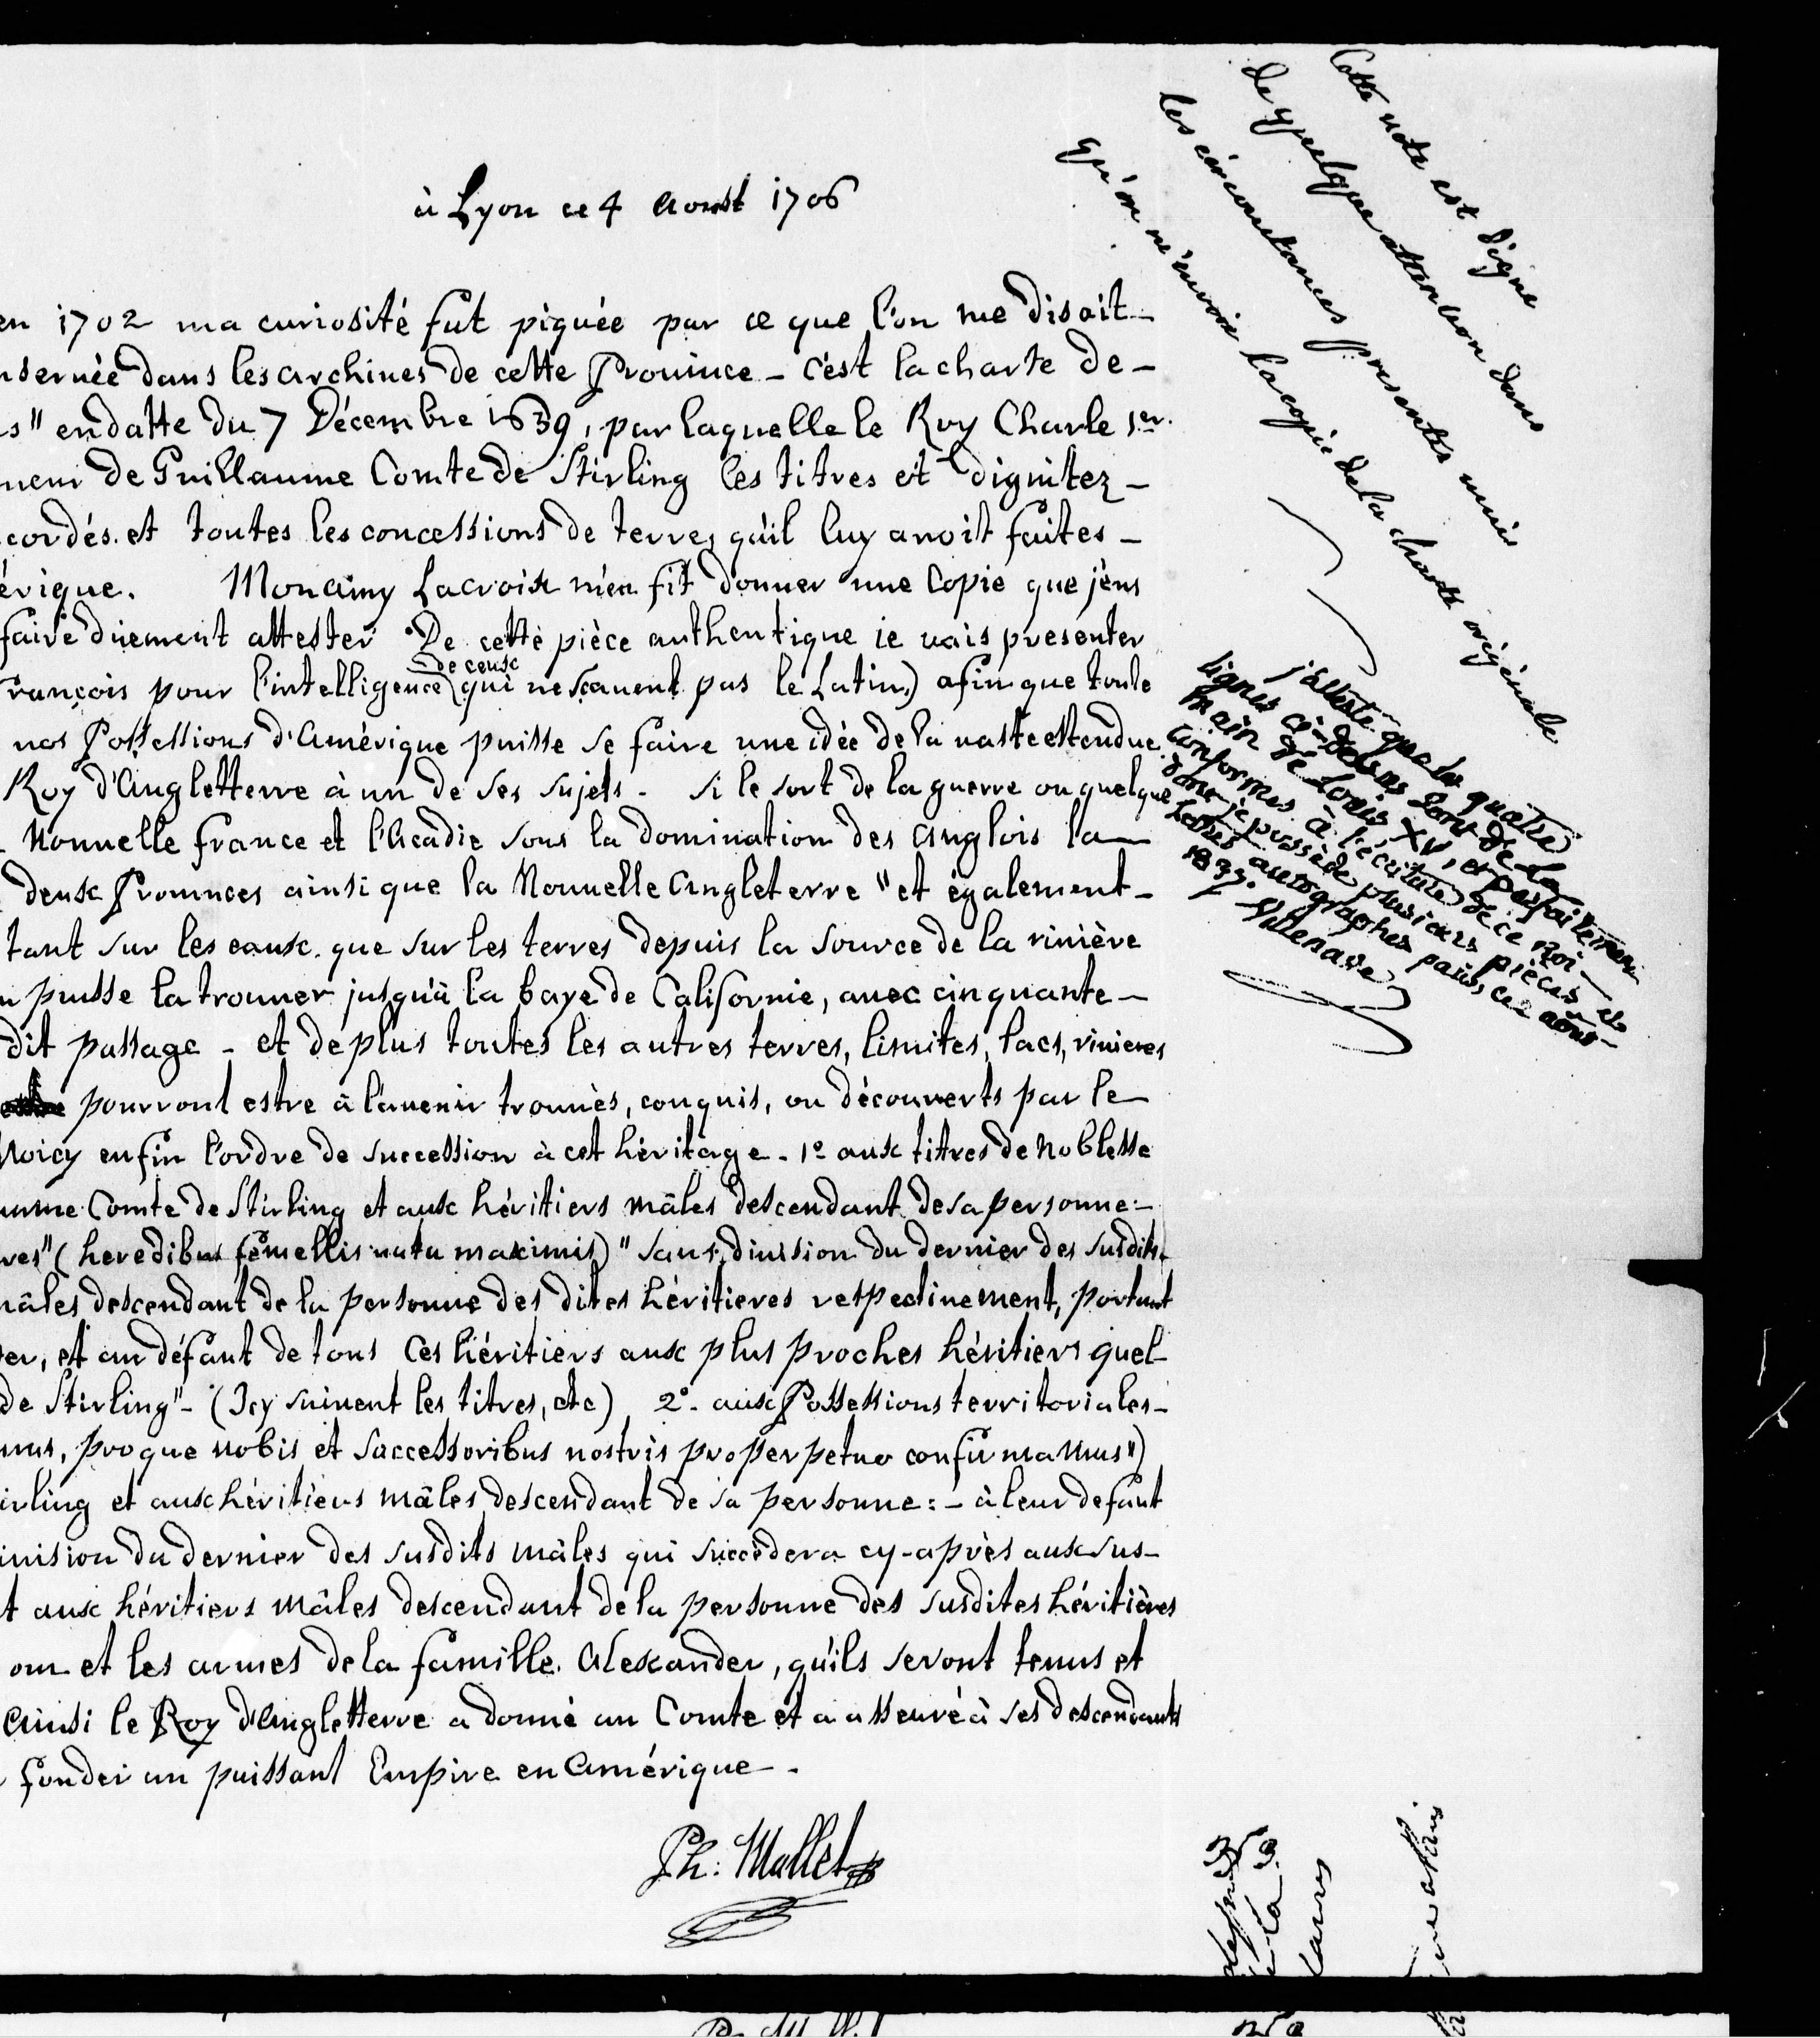 à Lyon ce 4 Aoust 1706
en 1702 ma curiosité fut piquée par ce que l'on me disait
nservée dans les archives de cette Province - c'est la charte de
s" en datte du 7 Décembre 1639, par laquelle le Roy Charle 1er.
neur de Guillaume Comte de Stirling les titres et dignitez
cordés et toutes les concessions de terre, qu'il luy avoit faites
érique. Mon amy Lacroix m'en fit donner une Copie que j'eus
faire duement attester. De cette pièce authentique ie vais presenter
de ceux
rançois pour l'intelligence (qui ne sçavent pas le Latin) afin que toute
nos Possessions d'Amérique puisse se faire une idée de la vaste estendue
Roy d'Angletterre à un de ses sujets. Si le sort de la guerre ou quelque
Nouvelle france et l'Acadie sous la domination des Anglois la
deux Provinces ainsi que la Nouvelle Angleterre "et également
tant sur les eaux que sur les terres depuis la source de la rivière
n puisse la trouver jusqu'à la baye de Californie, avec cinquante
dit passage - et de plus toutes les autres terres, limites, lacs, rivieres
pourront estre à l'avenir trouvés, conquis, ou découverts par le
Voicy enfin l'ordre de succession à cet héritage. 1º aux titres de Noblesse
ume Comte de Stirling et aux héritiers mâles descendant de sa personne:
res" (heredibus femellis natu maximis) "sans division du dernier des susdits
âles descendant de la personne des dites héritieres respectivement, portant
er, et au défaut de tous Ces héritiers aux plus proches héritiers quel
de Stirling" - (Icy suivent les titres, etc) 2º. aux Possessions territoriales
mus, proque nobis et successoribus nostris pro perpetuo confirmamus")
irling et aux héritiers mâles descendant de sa personne: - à leur defaut
ivision du dernier des susdits mâles qui succèdera cy-après aux sus-
t aux héritiers mâles descendant de la personne des susdites héritières
om et les armes de la famille Alexander, qu'ils seront tenus et
Ainsi le Roy d'Angletterre a donné au Comte et a asseuré à ses descendants
fonder un puissant Empire en Amérique.
Ph: Mallet
Cette note est digne
de quelque attention dans
les circonstances presentes mais
qu'on m'envoie la copie de la charte originale
j'atteste que les quatre
lignes ci-dessus sont de la
main de Louis XV, et parfaitement
conformes à l'écriture de ce roi
dont je possède plusieurs pièces et
lettres autographes paris, ce aout
Villenave